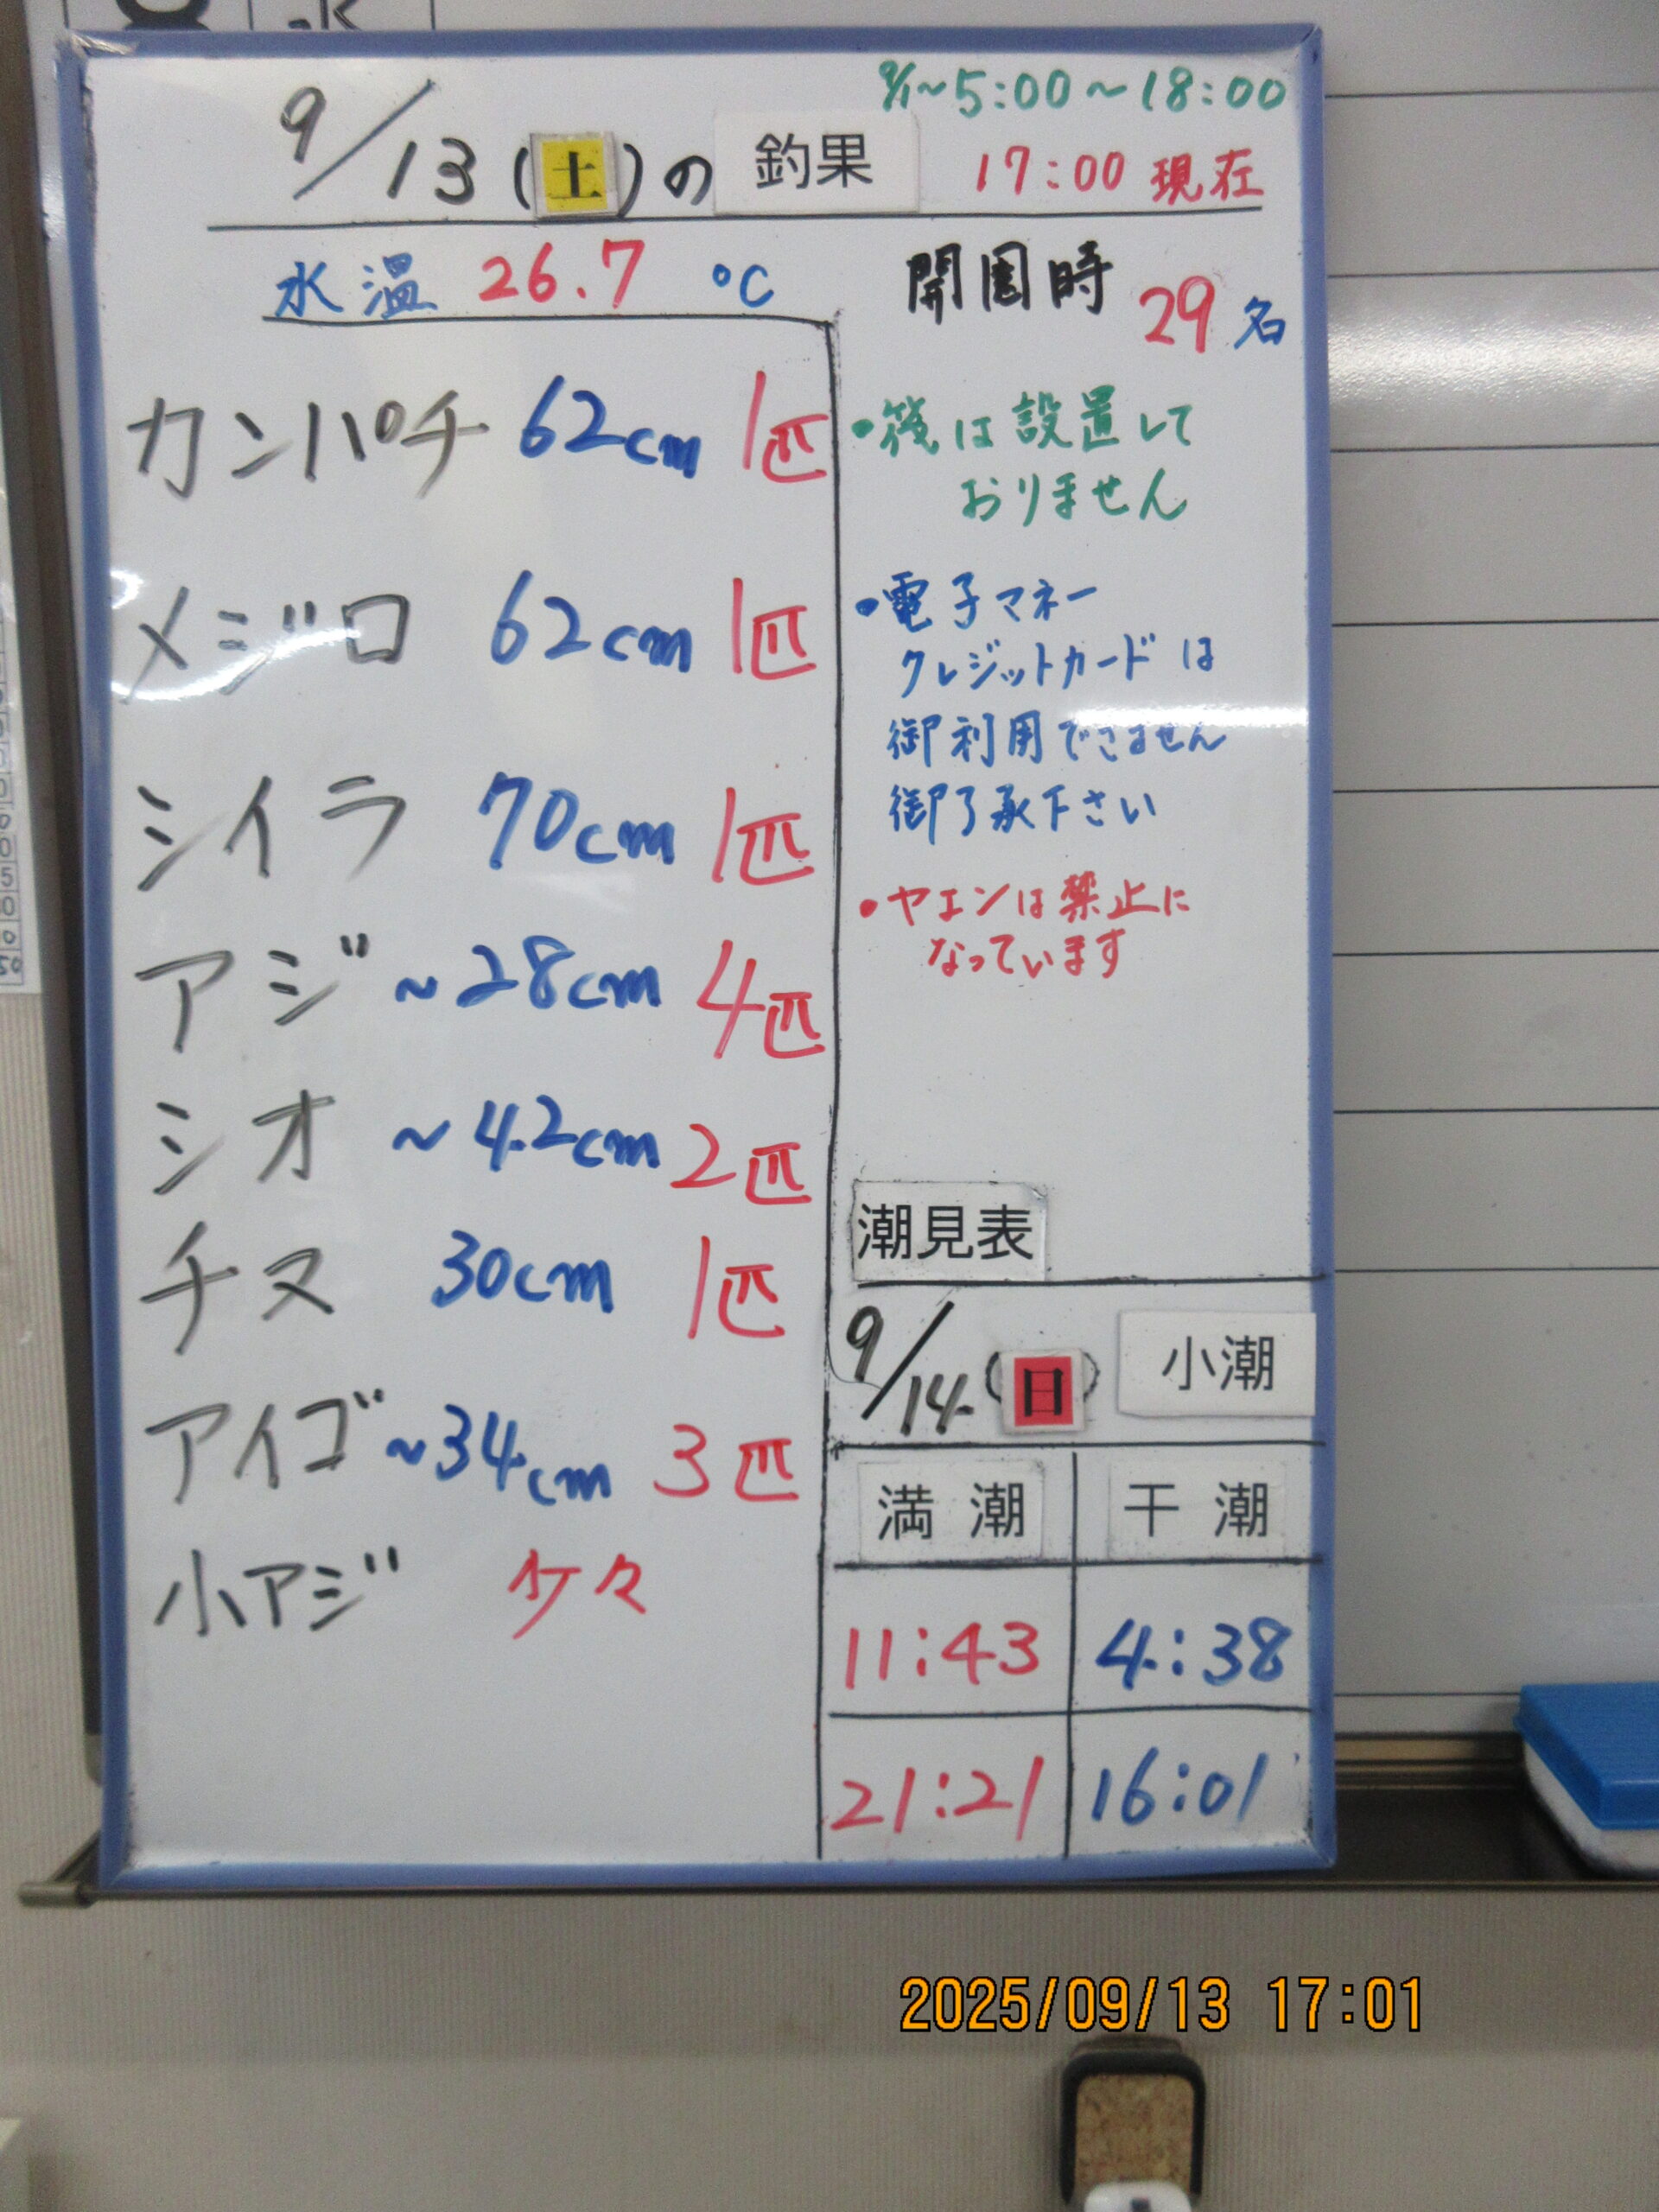 9/1~5:00~18:00
9/13(土)の 釣果 17:00 現在
水温 26.7 ℃
開園時 29名
カンパチ 62cm 1匹
メジロ 62cm 1匹
シイラ 70cm 1匹
アジ ~28cm 4匹
シオ ~42cm 2匹
チヌ 30cm 1匹
アイゴ ~34cm 3匹
小アジ 少々
・筏は設置して
おりません
・電子マネー
クレジットカードは
御利用できません
御了承下さい
・ヤエンは禁止に
なっています
潮見表
9/14(日) 小潮
満潮 干潮
11:43 4:38
21:21 16:01
2025/09/13 17:01